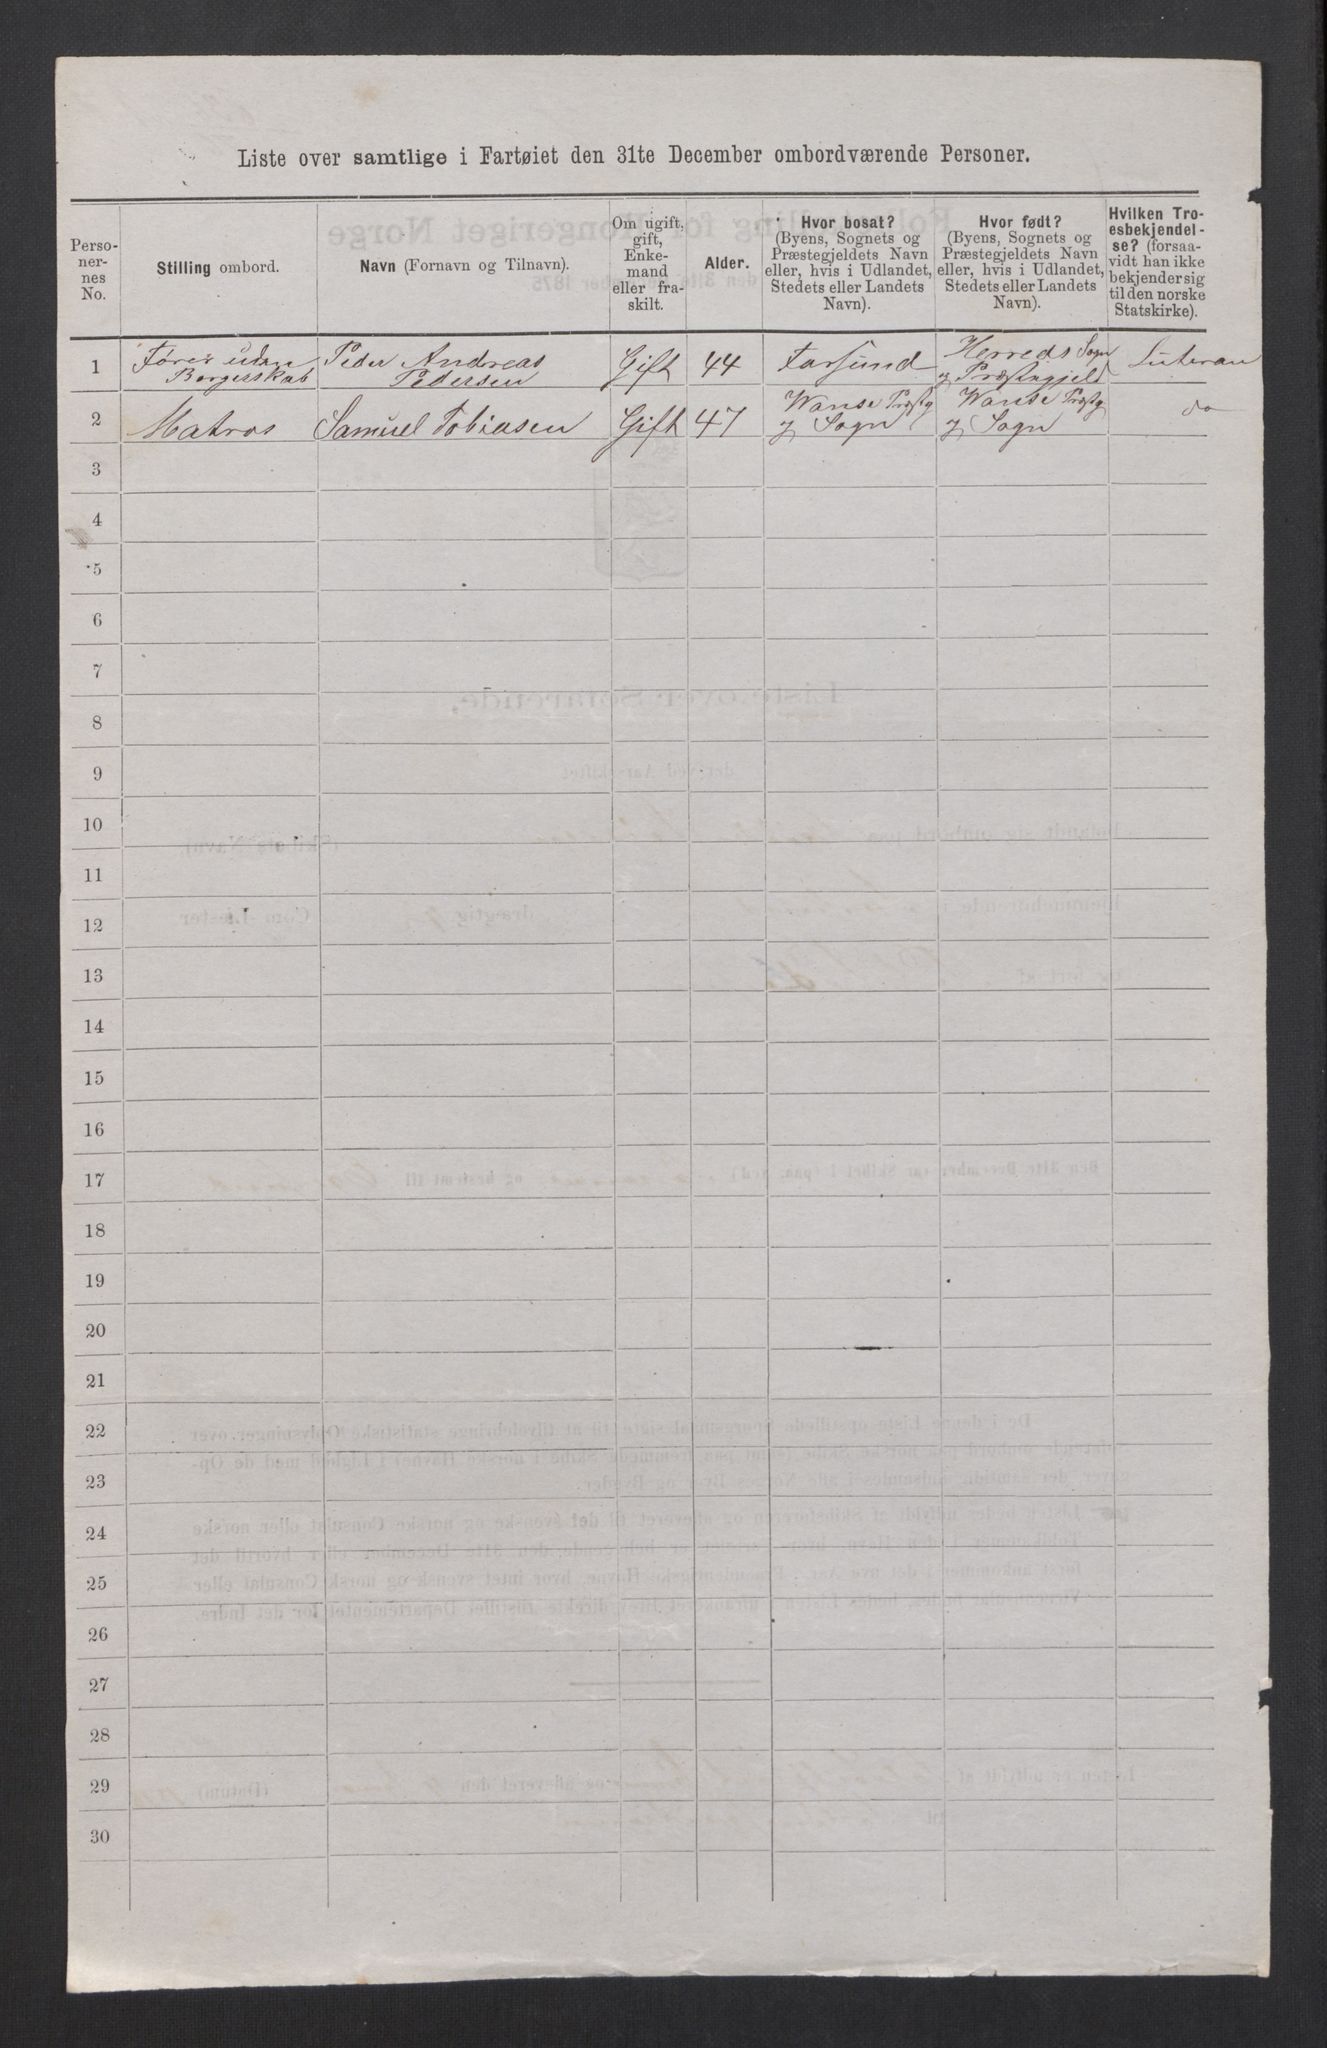 Liste over samtlige i Fartøiet den 31te December ombordværende Personer.
Perso-
ner-
nes
No.
Stilling ombord.
Navn (Fornavn og Tilnavn).
Om ugift,
gift,
Enke-
mand
eller fra-
skilt.
Alder.
Hvor bosat?
(Byens, Sognets og
Præstegjeldets Navn
eller, hvis i Udlandet,
Stedets eller Landets
Navn).
Hvor født?
(Byens, Sognets og
Præstegjeldets Navn
eller, hvis i Udlandet,
Stedets eller Landets
Navn).
Hvilken Tro-
esbekjendel-
se? (forsaa-
vidt han ikke
bekjender sig
til den norske
Statskirke).
1
Fører uden
Borgerskab
Peder Andreas
Pedersen
Gift
44
Farsund
Herreds Sogn
og Præstegjeld
Luteran
2
Matros
Samuel Tobiasen
Gift
47
Wanse Præstg
og Sogn
Wanse Præstg
og Sogn
do
3
4
5
6
7
8
9
10
11
12
13
14
15
16
17
18
19
20
21
22
23
24
25
26
27
28
29
30